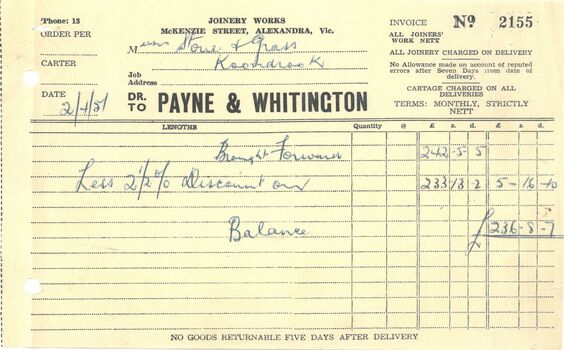 'Phone: 13
ORDER PER
CARTER
DATE 2/4/51
JOINERY WORKS
McKENZIE STREET, ALEXANDRA, Vic.
Messrs Stone & Grass
Koondrook
Job
Address
DR. TO PAYNE & WHITINGTON
INVOICE No 2155
ALL JOINERS' WORK NETT
ALL JOINERY CHARGED ON DELIVERY
No Allowance made on account of reputed
errors after Seven Days from date of
delivery.
CARTAGE CHARGED ON ALL
DELIVERIES
TERMS: MONTHLY, STRICTLY
NETT
LENGTHS Quantity @ £ s. d. £ s. d.
Brought Forward 242-5-5
Less 2 1/2% Discount on 233-13-2 5-16-10
Balance £236-8-7
NO GOODS RETURNABLE FIVE DAYS AFTER DELIVERY